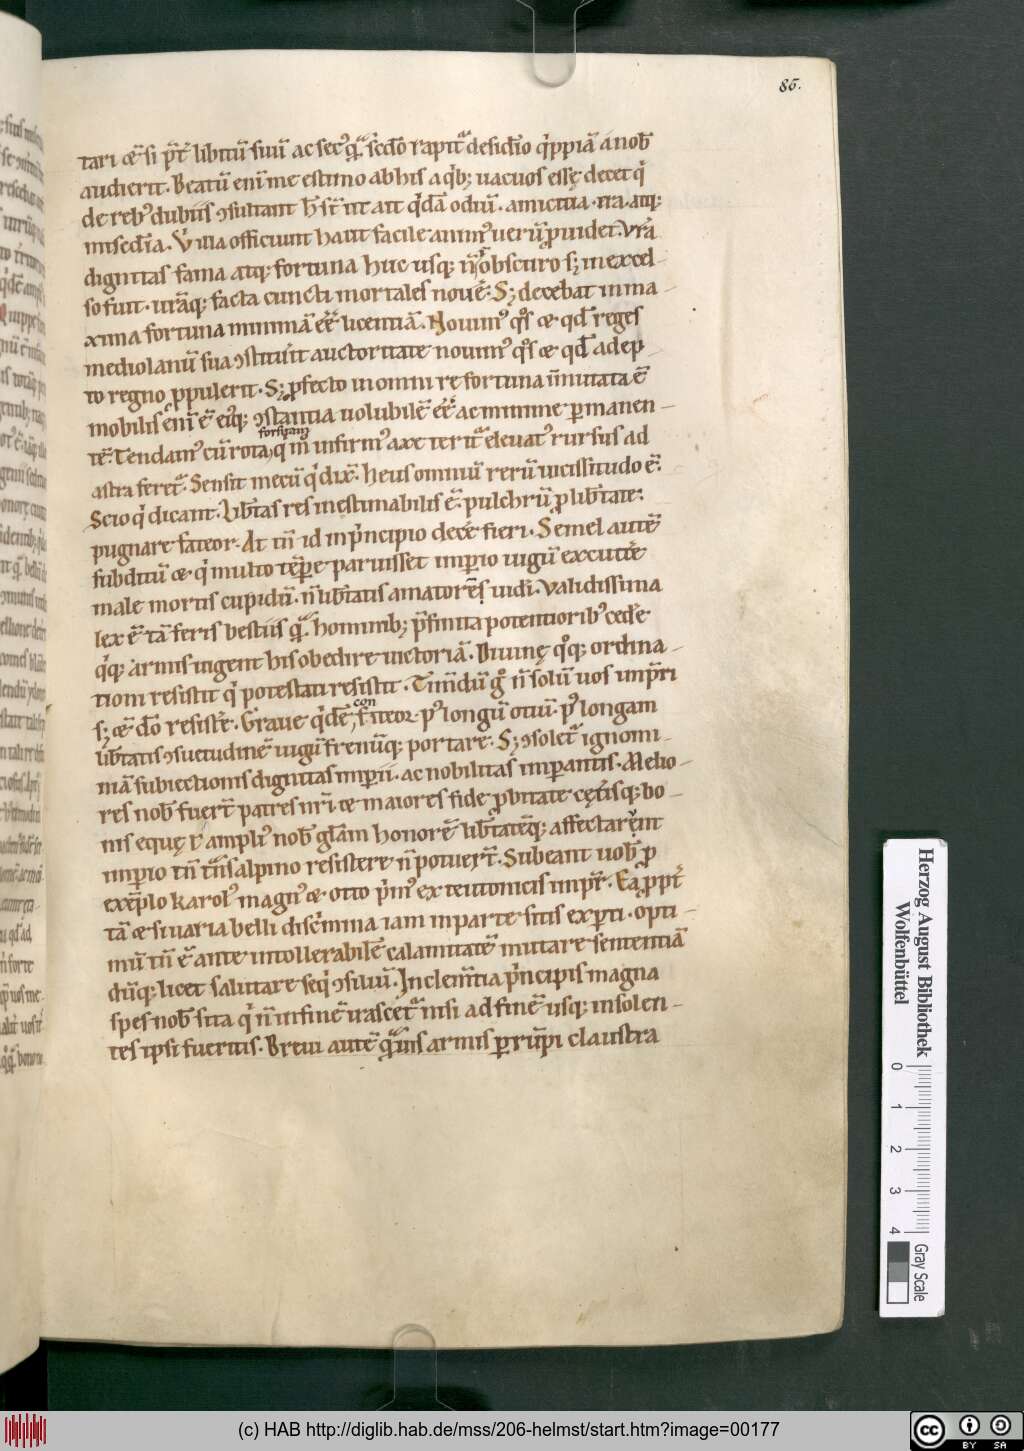 86.
tari. œ̄ si p̄t̄ libitū suū ac sec᷒ q̄. sc̄dō rapit᷑ desid̄io q̇ppiā á nob̄
audierit. Beatū enī me estimo ab his a q̇b; uacuos essę decet q̇
de reb᷒ dubiis ɔsultant h̄ st̄ ut ait q̇dā odiū. amicitia. ira. atq;
mised̄ia. V̇ illa officiunt haut facile anim᷒ uerū ꝓuidet. Vr̄a
dignitas fama atq; fortuna huc usq; n̄ obscuro s; in excel-
so fuit. utāq; facta cuncti mortales nouē. S; decebat in ma-
xima fortuna minimā eē licentiā. Nouim᷒ q̊s œ qd̄ reges
mediolanū sua ɔstitu'it auctoritate nouim᷒ q̊s œ qd̄ adep-
to regno ꝓpulerit. S; ꝓfecto in omni re fortuna n̄ mutata ē
mobilis enī ē ei᷒q; ɔstantia uolubilē eē ac minime ꝑmanen-
forsitam
tē. Tendam᷒ cū rota q̇ m̊ infirm᷒ axe terit᷑ eleuat᷒ rursus ad
astra feret᷑. Sensit mecū q̇ dix̄. heus omniū rerū uicissitudo ē.
Scio q̇ dicant. Lib̄tas res inestimabilis ē. pulchrū ꝓ lib̄tate
pugnare fateor. At tn̄ id in ṗncipio decē fieri. Semel autē
subditū œ. q̇ multo tēꝑe paruisset imꝑio iugū excutē
male mortis cupidū. n̄ lib̄tatis amatorē uid̄i. Validissima
lex ē tā feris bestiis q̄. hominib; p̄finita potentiorib᷒ ced̄e
q̇q; armis uigent his obedire uictoriā. Diuinę q̊q; ordina-
tioni resistit q̇ potestati resistit. Tim̄dū g̊ n̄ solū uos imp̄ri
con
s; œ̄ dō resist̄e. Graue q̇dē fiteor. p᷒ longū otiū. p᷒ longam
lib̄tatis ɔsuetudinē iugū frenūq; portare. S; ɔsolet᷑ ignomi-
niā subiectionis dignitas imꝑii. ac nobilitas imꝑantis. Melio-
res nob̄ fuer̄t patres nr̄i œ maiores fide ꝓbitate cęt̄isq; bo-
nis equę v̇ ampli᷒ nob̄ glām honorē lib̄tatēq; affectarēnt
imꝑio tn̄ t̄nsalpino resistere n̄ potuer̄t. Subeant uob̄ ꝓ
exēplo karol᷒ magn᷒ œ otto ṗm᷒ ex teutonicis imꝑr̄. Ea ꝓpt̄
tā œ si uaria belli disc̄mina iam in parte sitis exꝑti. opti-
mū tn̄ ē ante intollerabilē calamitatē mutare sententiā
diūq; licet salutare seq̇ ɔsiliū. In clem̄tia ṗncipis magna
spes nob̄ sita q̇ n̄ in finē irascet᷑ nisi ad finē usq; insolen-
tes ipsi fueritis. Breui autē q̄ uis armis ꝑrūpi claustra
Herzog August Bibliothek
Wolfenbüttel
0 1 2 3 4
Gray Scale
(c) HAB http://diglib.hab.de/mss/206-helmst/start.htm?image=00177
cc BY SA